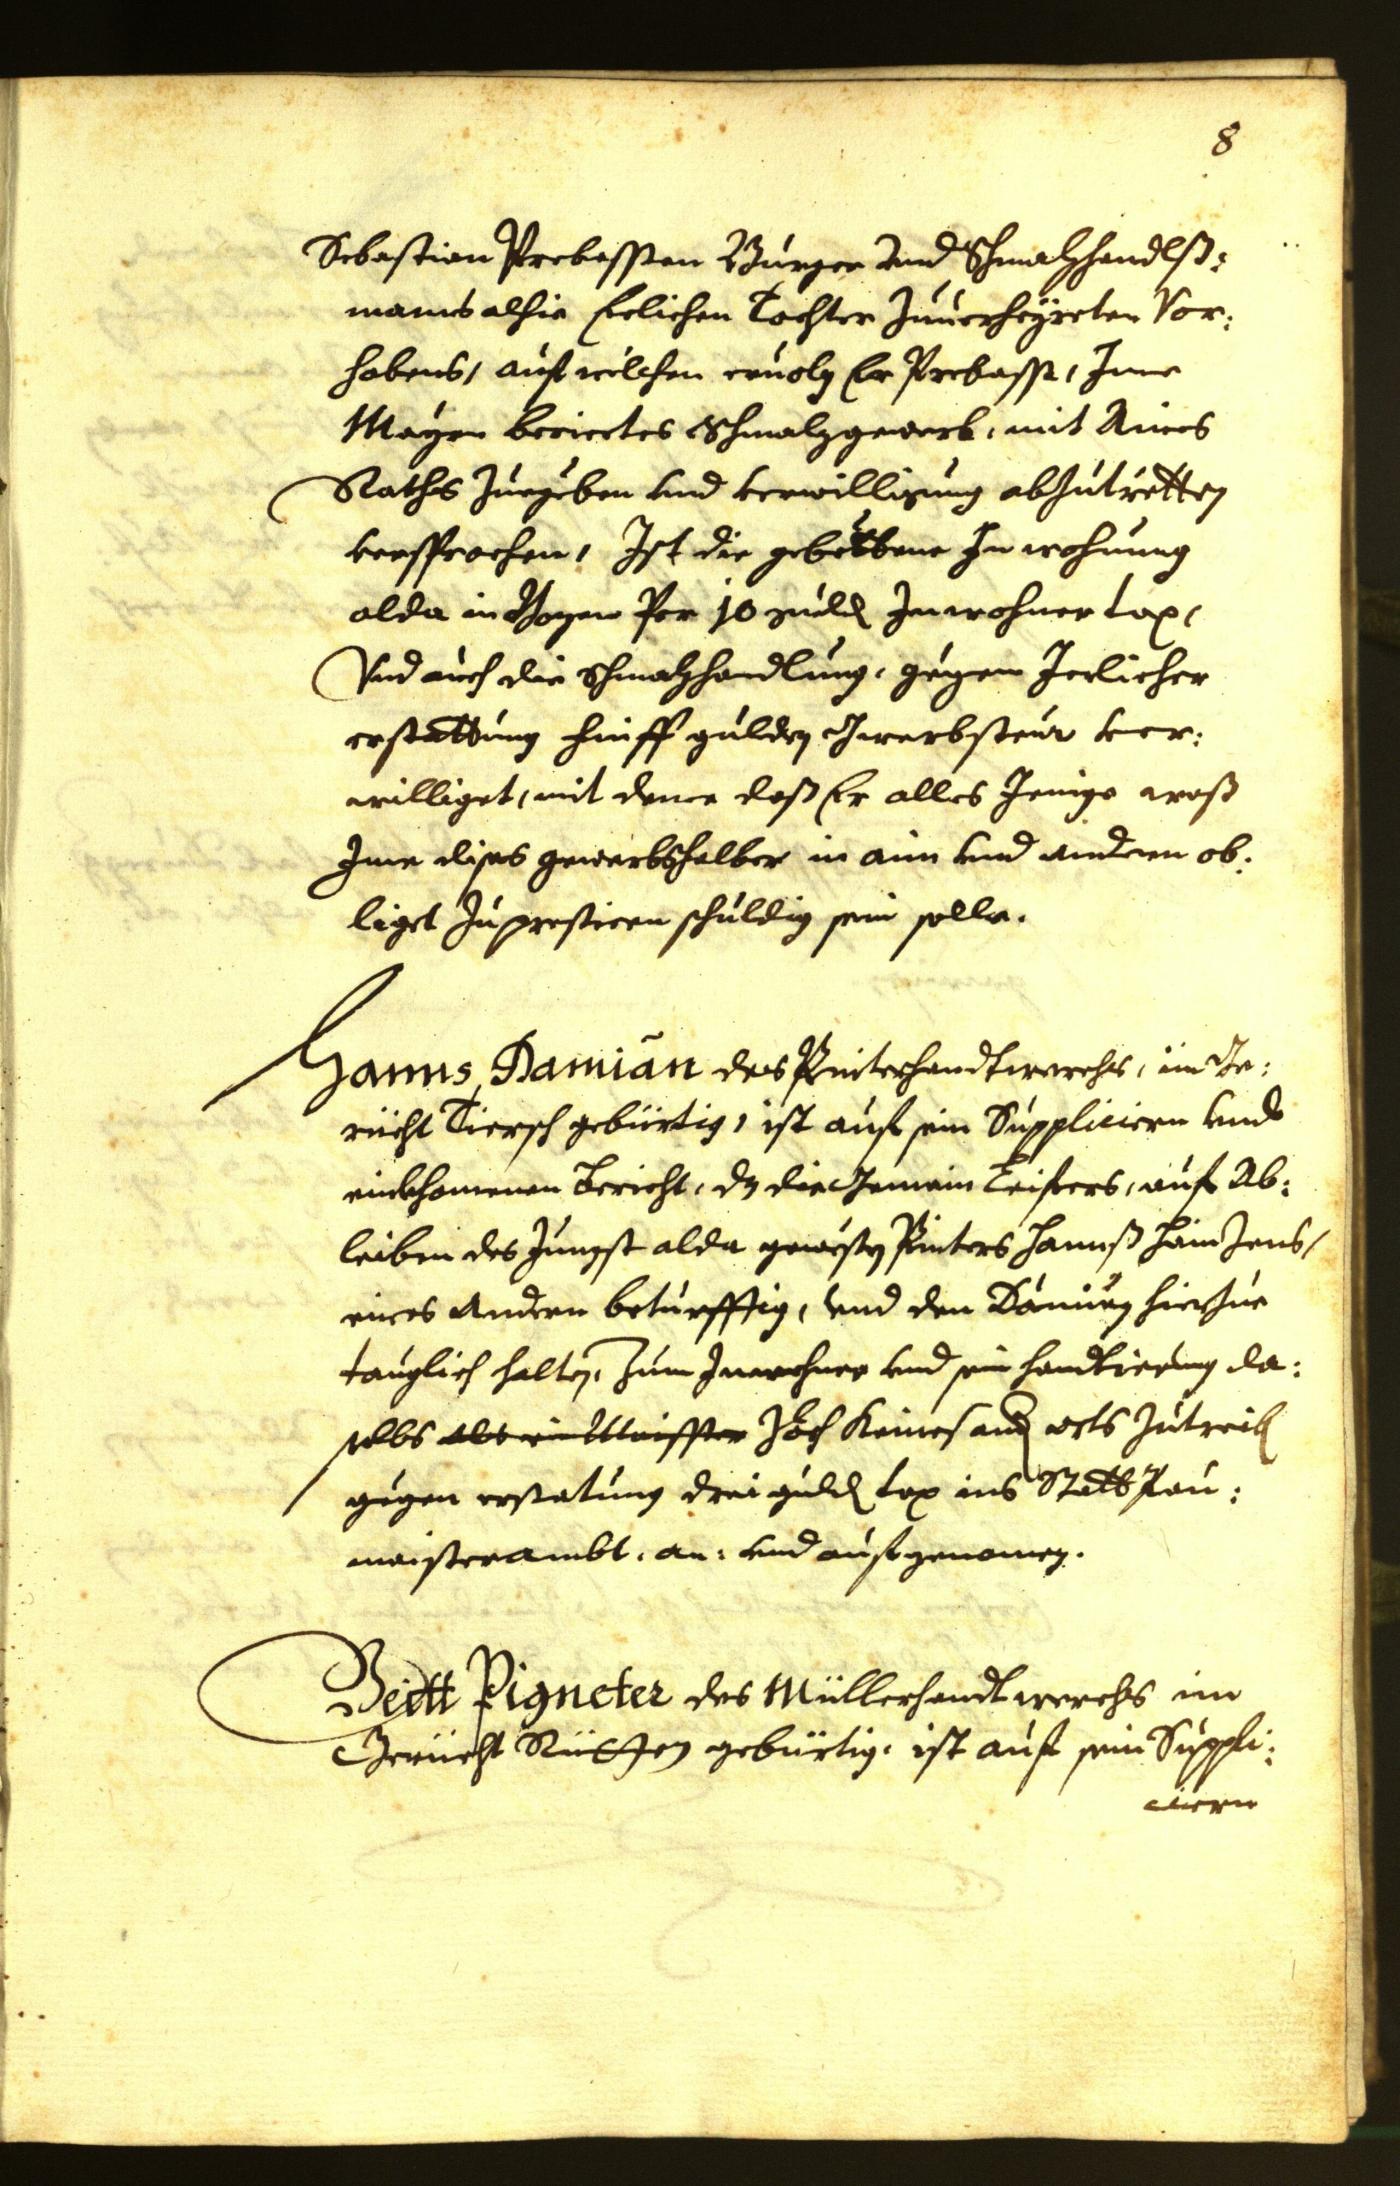 8
Sebastian Prebassten Burger vnd Schmalzhandlß:
manns alhie Eelichen Tochter Zuuerheÿreten Vor:
habens, auf welchen eruolg Er Prebasst, Ime
Mayrn beriertes Schmalzgewerb, mit Aines
Raths Zuegeben vnd verwilligung abzutretten
versprochen, Ist die gebettene Inwohnung
alda in Bozen Per 10 guld Inwohner tax,
Vnd auch die Schmalzhandlung, gegen Jerlicher
erstattung finff gulden Gwerbsteur ver:
williget, mit deme daß Er alles Jenige waß
Ime dises gewerbshalber in ain vnd andern ob:
liget Zuprestieren schuldig sein solle.
Hanns Damian des Pinterhandtwerchs, im Ge:
richt Tiersch gebürtig, ist auf sein Suppliciern vnd
einkhomenen Bericht, dz die Gemain Leifers, auf Ab:
leiben des Jungst alda gewesten Pinters Hannß
eines Andern beturfftig, vnd den Damian hierzue
tauglich halten, Zum Inwohner vnd sein handtierung da:
selbs als ein Maisster Joch Keines and orts Zutreib
gegen erstatung drei guld tax ins Statt Pau:
maisterambt, an: vnd aufgenomen.
Veitt Pigneter des Müllerhandtwerchs im
Gericht Ritten gebürtig, ist auf sein Suppli:
ciern